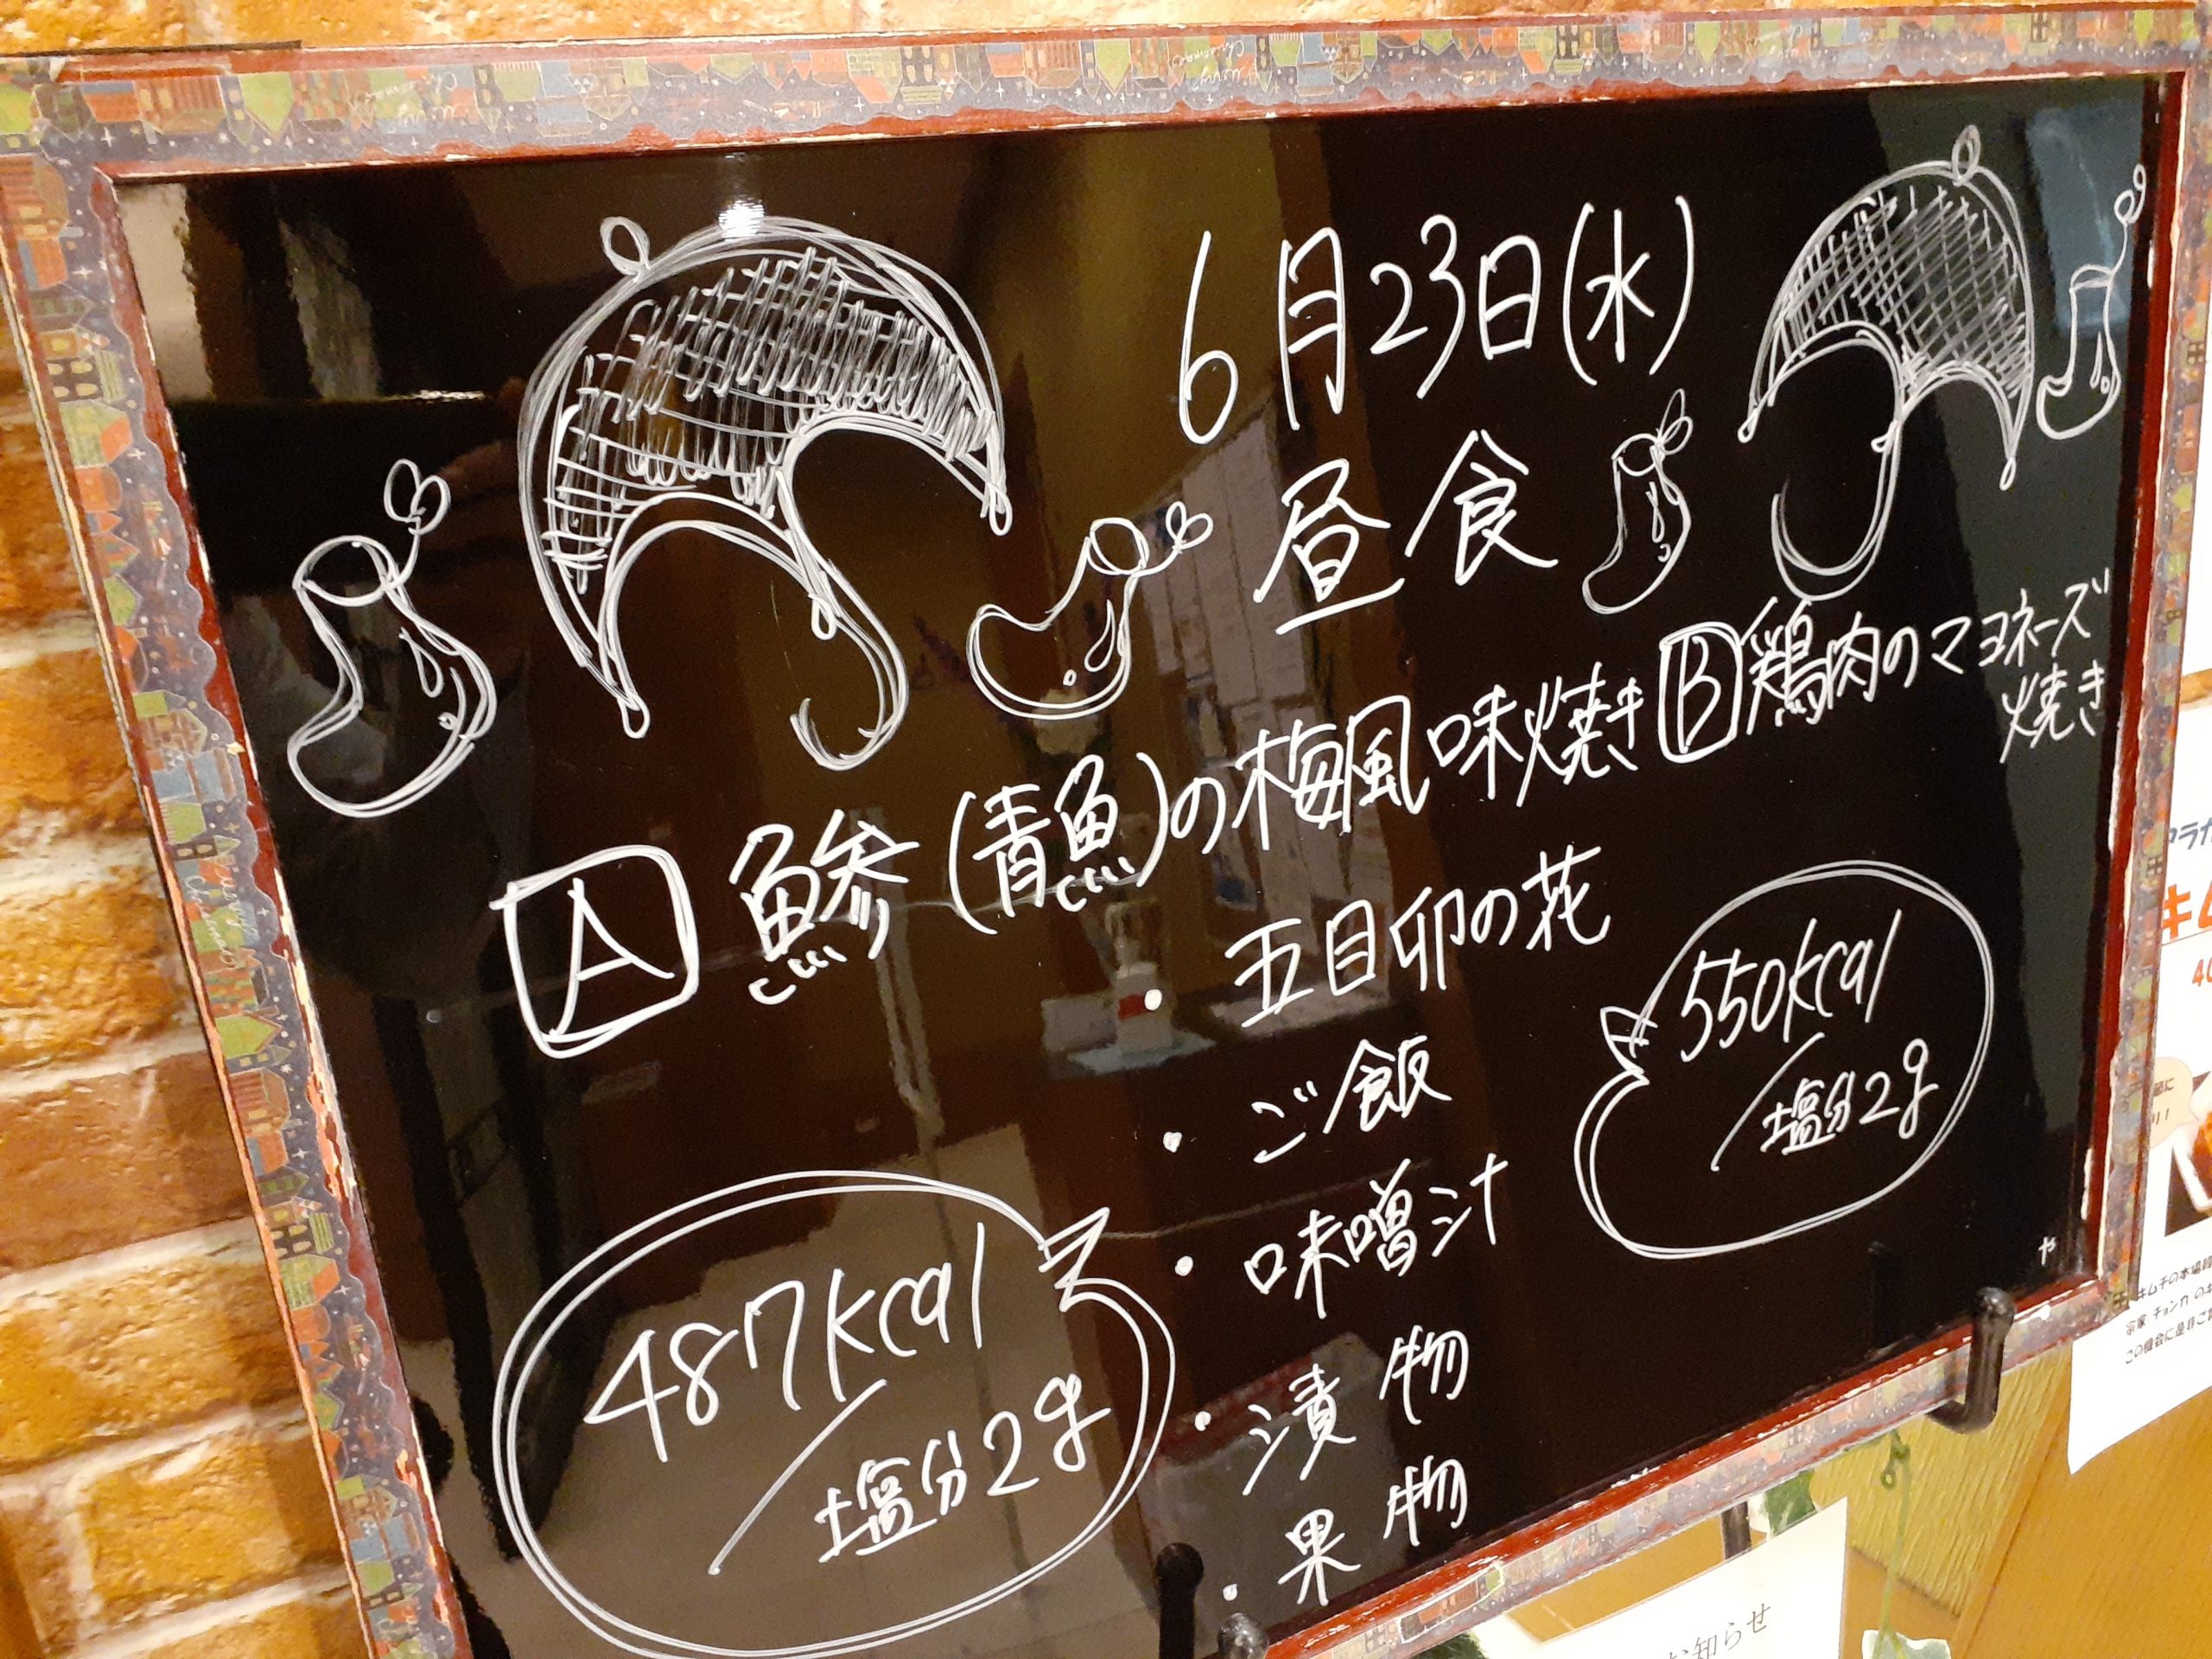 6月23日(水)
昼食
A 鯵(青魚)の梅風味焼き
B 鶏肉のマヨネーズ
焼き
・五目卯の花
・ご飯
・味噌汁
・漬物
・果物
487kcal
/塩分2g
550kcal
/塩分2g
キムチの本場韓
この機会に是非ご
お知らせ